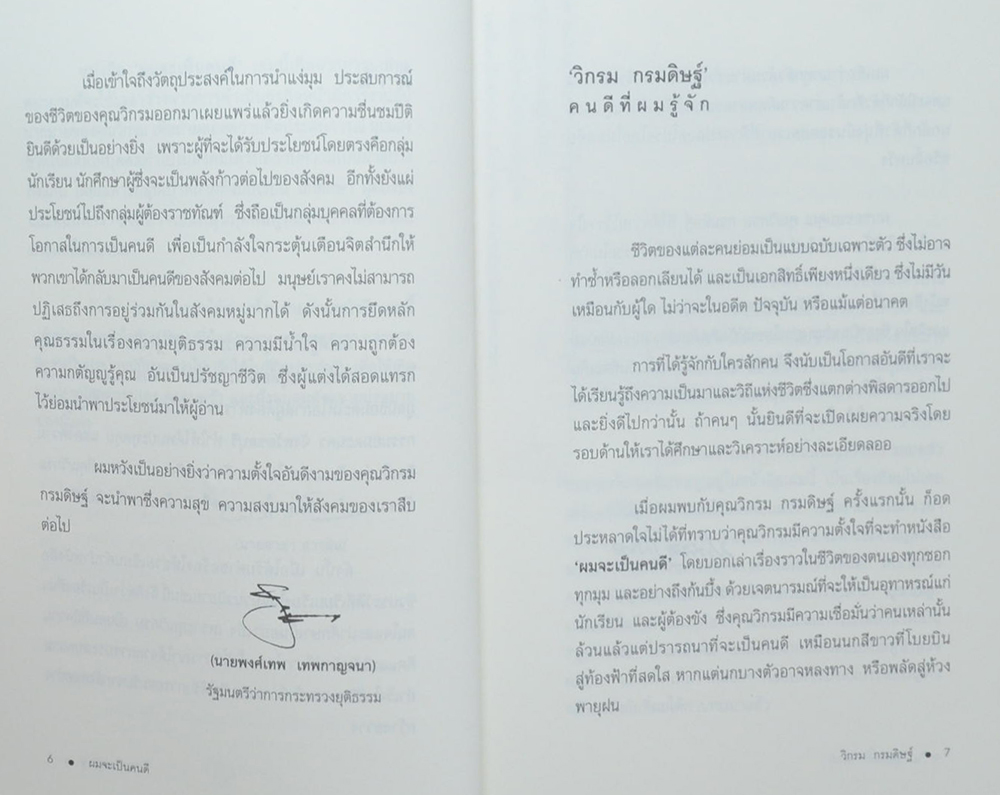 เมื่อเข้าใจถึงวัตถุประสงค์ในการนำแง่มุม ประสบการณ์
ของชีวิตของคุณวิกรมออกมาเผยแพร่แล้วยิ่งเกิดความชื่นชมปิติ
ยินดีด้วยเป็นอย่างยิ่ง เพราะผู้ที่จะได้รับประโยชน์โดยตรงคือกลุ่ม
นักเรียน นักศึกษาผู้ซึ่งจะเป็นพลังก้าวต่อไปของสังคม อีกทั้งยังแผ่
ประโยชน์ไปถึงกลุ่มผู้ต้องราชทัณฑ์ ซึ่งถือเป็นกลุ่มบุคคลที่ต้องการ
โอกาสในการเป็นคนดี เพื่อเป็นกำลังใจกระตุ้นเตือนจิตสำนึกให้
พวกเขาได้กลับมาเป็นคนดีของสังคมต่อไป มนุษย์เราคงไม่สามารถ
ปฏิเสธถึงการอยู่ร่วมกันในสังคมหมู่มากได้ ดังนั้นการยึดหลัก
คุณธรรมในเรื่องความยุติธรรม ความมีน้ำใจ ความถูกต้อง
ความกตัญญูรู้คุณ อันเป็นปรัชญาชีวิต ซึ่งผู้แต่งได้สอดแทรก
ไว้ย่อมนำพาประโยชน์มาให้ผู้อ่าน
ผมหวังเป็นอย่างยิ่งว่าความตั้งใจอันดีงามของคุณวิกรม
กรมดิษฐ์ จะนำพาซึ่งความสุข ความสงบมาให้สังคมของเราสืบ
ต่อไป
(นายพงศ์เทพ เทพกาญจนา)
รัฐมนตรีว่าการกระทรวงยุติธรรม
6 • ผมจะเป็นคนดี
‘วิกรม กรมดิษฐ์’
คนดีที่ผมรู้จัก
ชีวิตของแต่ละคนย่อมเป็นแบบฉบับเฉพาะตัว ซึ่งไม่อาจ
ทำซ้ำหรือลอกเลียนได้ และเป็นเอกสิทธิ์เพียงหนึ่งเดียว ซึ่งไม่มีวัน
เหมือนกับผู้ใด ไม่ว่าจะในอดีต ปัจจุบัน หรือแม้แต่อนาคต
การที่ได้รู้จักกับใครสักคน จึงนับเป็นโอกาสอันดีที่เราจะ
ได้เรียนรู้ถึงความเป็นมาและวิถีแห่งชีวิตซึ่งแตกต่างพิสดารออกไป
และยิ่งดีไปกว่านั้น ถ้าคนๆ นั้นยินดีที่จะเปิดเผยความจริงโดย
รอบด้านให้เราได้ศึกษาและวิเคราะห์อย่างละเอียดลออ
เมื่อผมพบกับคุณวิกรม กรมดิษฐ์ ครั้งแรกนั้น ก็อด
ประหลาดใจไม่ได้ที่ทราบว่าคุณวิกรมมีความตั้งใจที่จะทำหนังสือ
‘ผมจะเป็นคนดี’ โดยบอกเล่าเรื่องราวในชีวิตของตนเองทุกซอก
ทุกมุม และอย่างถึงก้นบึ้ง ด้วยเจตนารมณ์ที่จะให้เป็นอุทาหรณ์แก่
นักเรียน และผู้ต้องขัง ซึ่งคุณวิกรมมีความเชื่อมั่นว่าคนเหล่านั้น
ล้วนแล้วแต่ปรารถนาที่จะเป็นคนดี เหมือนนกสีขาวที่โบยบิน
สู่ท้องฟ้าที่สดใส หากแต่นกบางตัวอาจหลงทาง หรือพลัดสู่ห้วง
พายุฝน
วิกรม กรมดิษฐ์ • 7